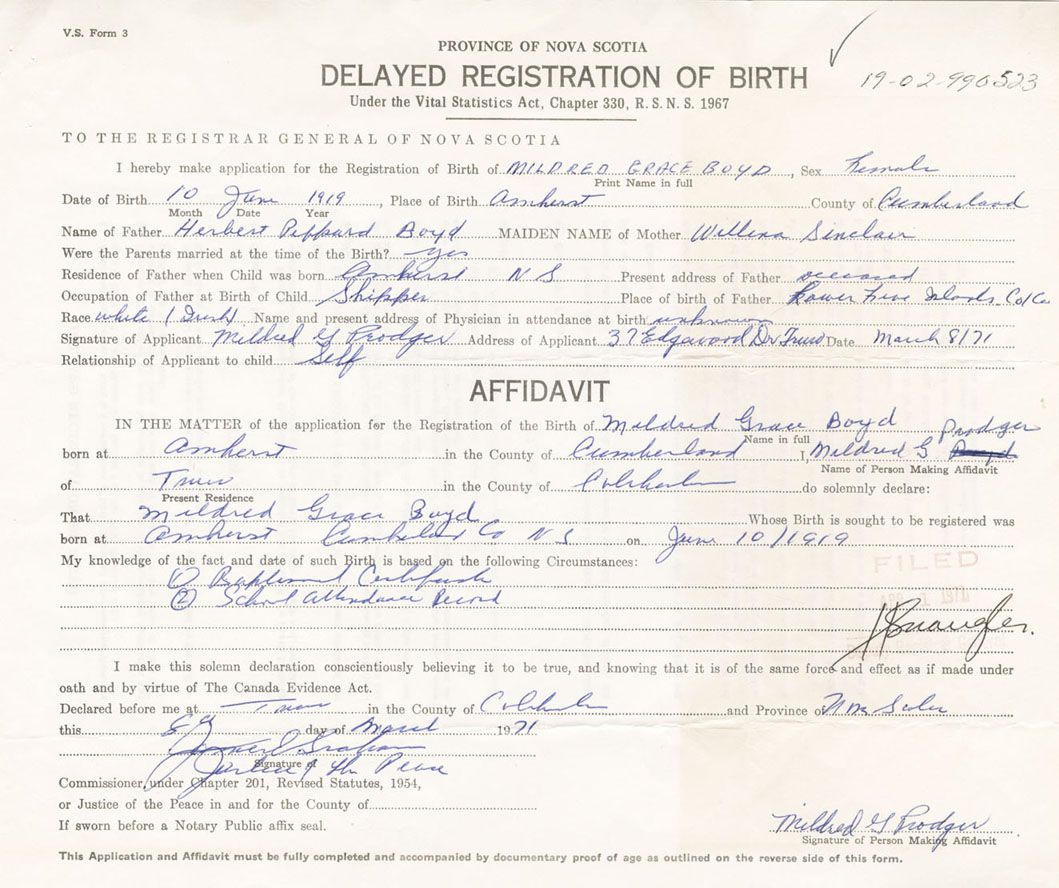 V.S. Form 3
PROVINCE OF NOVA SCOTIA
DELAYED REGISTRATION OF BIRTH
19-02-990523
Under the Vital Statistics Act, Chapter 330, R. S. N. S. 1967
TO THE REGISTRAR GENERAL OF NOVA SCOTIA
I hereby make application for the Registration of Birth of MILDRED GRACE BOYD, Sex Female
Print Name in full
Date of Birth 10 June 1919, Place of Birth Amherst County of Cumberland
Month Date Year
Name of Father Herbert Peppard Boyd MAIDEN NAME of Mother Willena Sinclair
Were the Parents married at the time of the Birth? yes
Residence of Father when Child was born Amherst N S Present address of Father deceased
Occupation of Father at Birth of Child Shipper Place of birth of Father Lower Five Islands, Col Co
Race white (Irish) Name and present address of Physician in attendance at birth unknown
Signature of Applicant Mildred G Prodger Address of Applicant 37 Edgewood Dr Truro Date March 8/71
Relationship of Applicant to child Self
AFFIDAVIT
IN THE MATTER of the application for the Registration of the Birth of Mildred Grace Boyd
Name in full
Prodger
born at Amherst in the County of Cumberland I, Mildred G Boyd
Name of Person Making Affidavit
of Truro in the County of Colchester do solemnly declare:
Present Residence
That Mildred Grace Boyd Whose Birth is sought to be registered was
born at Amherst Cumberland Co N S on June 10/1919
My knowledge of the fact and date of such Birth is based on the following Circumstances:
(1) Baptismal Certificate
(2) School Attendance Record
FILED
1971
I make this solemn declaration conscientiously believing it to be true, and knowing that it is of the same force and effect as if made under
oath and by virtue of The Canada Evidence Act.
Declared before me at Truro in the County of Colchester and Province of Nova Scotia
this 8 day of March 1971
Signature of
Justice of the Peace
Commissioner, under Chapter 201, Revised Statutes, 1954,
or Justice of the Peace in and for the County of
If sworn before a Notary Public affix seal.
Mildred G Prodger
Signature of Person Making Affidavit
This Application and Affidavit must be fully completed and accompanied by documentary proof of age as outlined on the reverse side of this form.